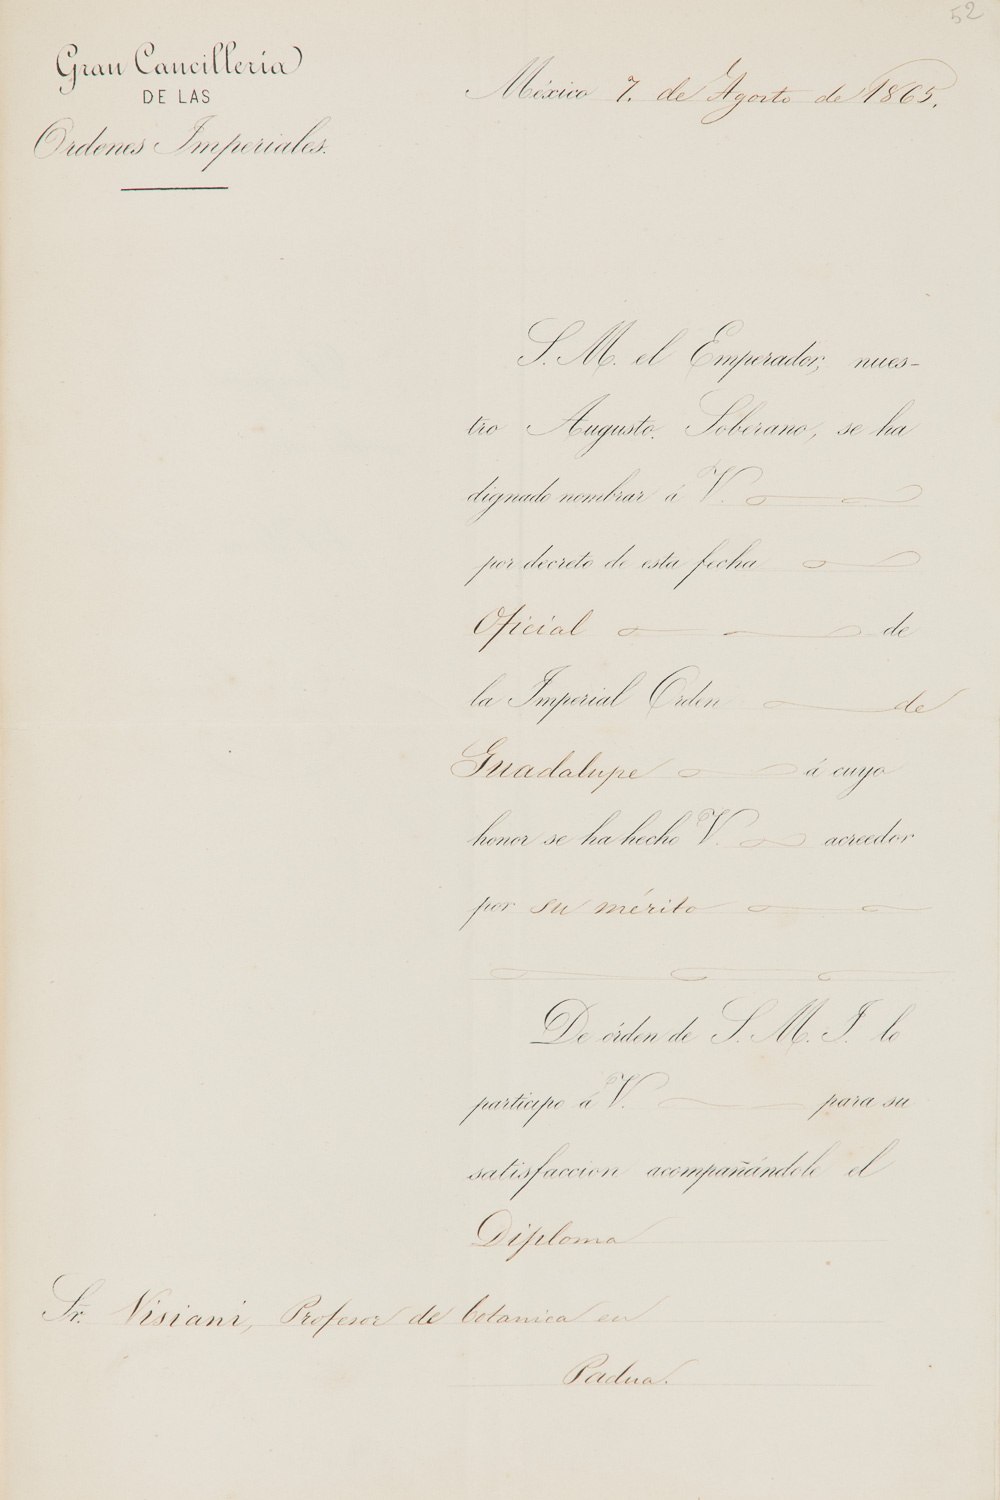 52
Gran Cancillería
DE LAS
Ordenes Imperiales.
México 7. de Agosto de 1865.
S. M. el Emperador, nues-
tro Augusto Soberano, se ha
dignado nombrar á V.
por decreto de esta fecha
Oficial de
la Imperial Orden de
Guadalupe á cuyo
honor se ha hecho V. acreedor
por su mérito
De órden de S. M. I. lo
participo á V. para su
satisfaccion acompañándole el
Diploma
Sr. Visiani, Profesor de botanica en
Padua.